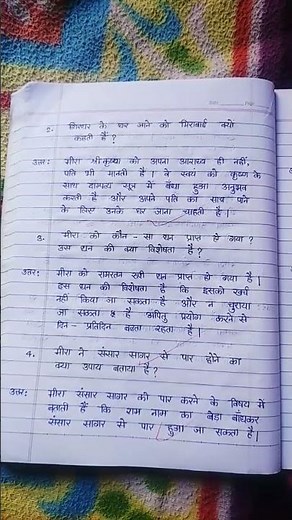 2. गिरधर के घर जाने को मिराबाई क्यो
कहती हैं?
उत्तर: मीरा श्रीकृष्ण को अपना आराध्य ही नहीं,
पति भी मानती है। वे स्वयं को कृष्ण के
साथ दाम्पत्य सूत्र में बंधा हुआ अनुभव
करती है और अपने पति का साथ पाने
के लिए उनके घर जाना चाहती है।
3. मीरा को कौन-सा धन प्राप्त हो गया?
उस धन की क्या विशेषता है?
उत्तर: मीरा को रामरतन रूपी धन प्राप्त हो गया है।
इस धन की विशेषता है कि इसको खर्च
नहीं किया जा सकता है और न चुराया
जा सकता है अपितु प्रयोग करने से
दिन-प्रतिदिन बढता रहता है।
4. मीरा ने संसार सागर से पार होने का
क्या उपाय बताया है?
उत्तर: मीरा संसार सागर को पार करने के विषय में
बताती हैं कि राम नाम का बेडा बाँधकर
संसार सागर से पार हुआ जा सकता है।